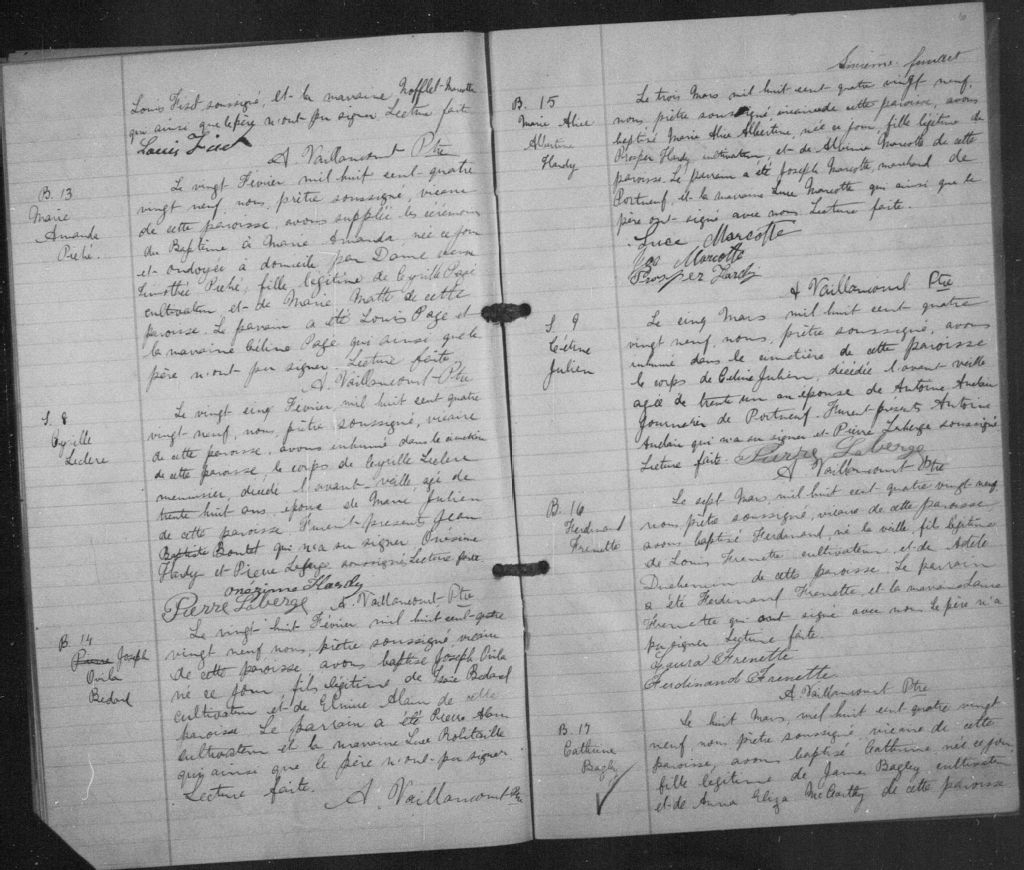 Louis Fiset soussigné, et la marraine Nofflet Marcotte
qui ainsi que le père n'ont pu signer Lecture faite
Louis Fiset
A. Vaillancourt Ptre
B. 13
Marie
Amanda
Piché.
Le vingt Février mil huit cent quatre
vingt neuf, nous, prêtre soussigné, vicaire
de cette paroisse, avons supplée les cérémonies
du Baptême à Marie Amanda, née ce jour
et ondoyée à domicile par Dame
Timothée Piché, fille légitime de Cyrille Pagé
cultivateur, et de Marie Matte de cette
paroisse. Le parrain a été Louis Pagé et
la marraine Céline Pagé qui ainsi que le
père n'ont pu signer. Lecture faite.
A. Vaillancourt Ptre
S. 8
Cyrille
Leclerc
Le vingt cinq Février, mil huit cent quatre
vingt-neuf, nous, prêtre soussigné, vicaire
de cette paroisse, avons inhumé dans le cimetière
de cette paroisse le corps de Cyrille Leclerc
menuisier, décédé l'avant-veille agé de
trente huit ans, époux de Marie Julien
de cette paroisse Furent présents Jean
Baptiste Boutet qui n'a su signer Onésime
Hardy et Pierre Laberge soussignés Lecture faite
onézime Hardy
Pierre Laberge
A. Vaillancourt Ptre
B. 14
Pierre Joseph
Ovila
Bedard
Le vingt huit Février mil huit cent quatre
vingt neuf nous, prêtre soussigné vicaire
de cette paroisse avons baptisé Joseph Ovila
né ce jour, fils légitime de Isaïe Bedard
cultivateur et de Elmire Alain de cette
paroisse. Le parrain a été Pierre Alain
cultivateur et la marraine Luce Robitaille
qui ainsi que le père n'ont pu signer
Lecture faite.
A. Vaillancourt Ptre
6
Sixième feuillet
B. 15
Marie Alice
Albertine
Hardy
Le trois Mars mil huit cent quatre vingt neuf,
nous prêtre soussigné, vicaire de cette paroisse, avons
baptisé Marie Alice Albertine, née ce jour, fille légitime de
Prosper Hardy cultivateur, et de Albina Marcotte de cette
paroisse. Le parrain a été Joseph Marcotte, marchand de
Portneuf, et la marraine Luce Marcotte qui ainsi que le
père ont signé avec nous Lecture faite.
Luce Marcotte
Jos Marcotte
Prosper Hardy
A Vaillancourt Ptre
S 9
Céline
Julien
Le cinq Mars mil huit cent quatre
vingt neuf, nous, prêtre soussigné, avons
inhumé dans le cimetière de cette paroisse
le corps de Céline Julien, décédée l'avant veille
agée de trente un an épouse de Antoine Audain
journalier de Portneuf. Furent présents Antoine
Audain qui n'a su signer et Pierre Laberge soussigné
Lecture faite. Pierre Laberge
A Vaillancourt Ptre
B. 16
Ferdinand
Frenette
Le sept Mars, mil huit cent quatre vingt neuf
nous, prêtre soussigné, vicaire de cette paroisse
avons baptisé Ferdinand, né la veille, fils légitime
de Louis Frenette cultivateur, et de Adèle
Duchesneau de cette paroisse. Le parrain
a été Ferdinand Frenette, et la marraine Laura
Frenette qui ont signé avec nous Le père n'a
pu signer Lecture faite.
Laura Frenette
Ferdinand Frenette
A. Vaillancourt Ptre
B. 17
Catherine
Bagley
Le huit Mars, mil huit cent quatre vingt
neuf, nous prêtre soussigné, vicaire de cette
paroisse, avons baptisé Catherine née ce jour,
fille légitime de James Bagley cultivateur
et de Anna Eliza McCarthy de cette paroisse